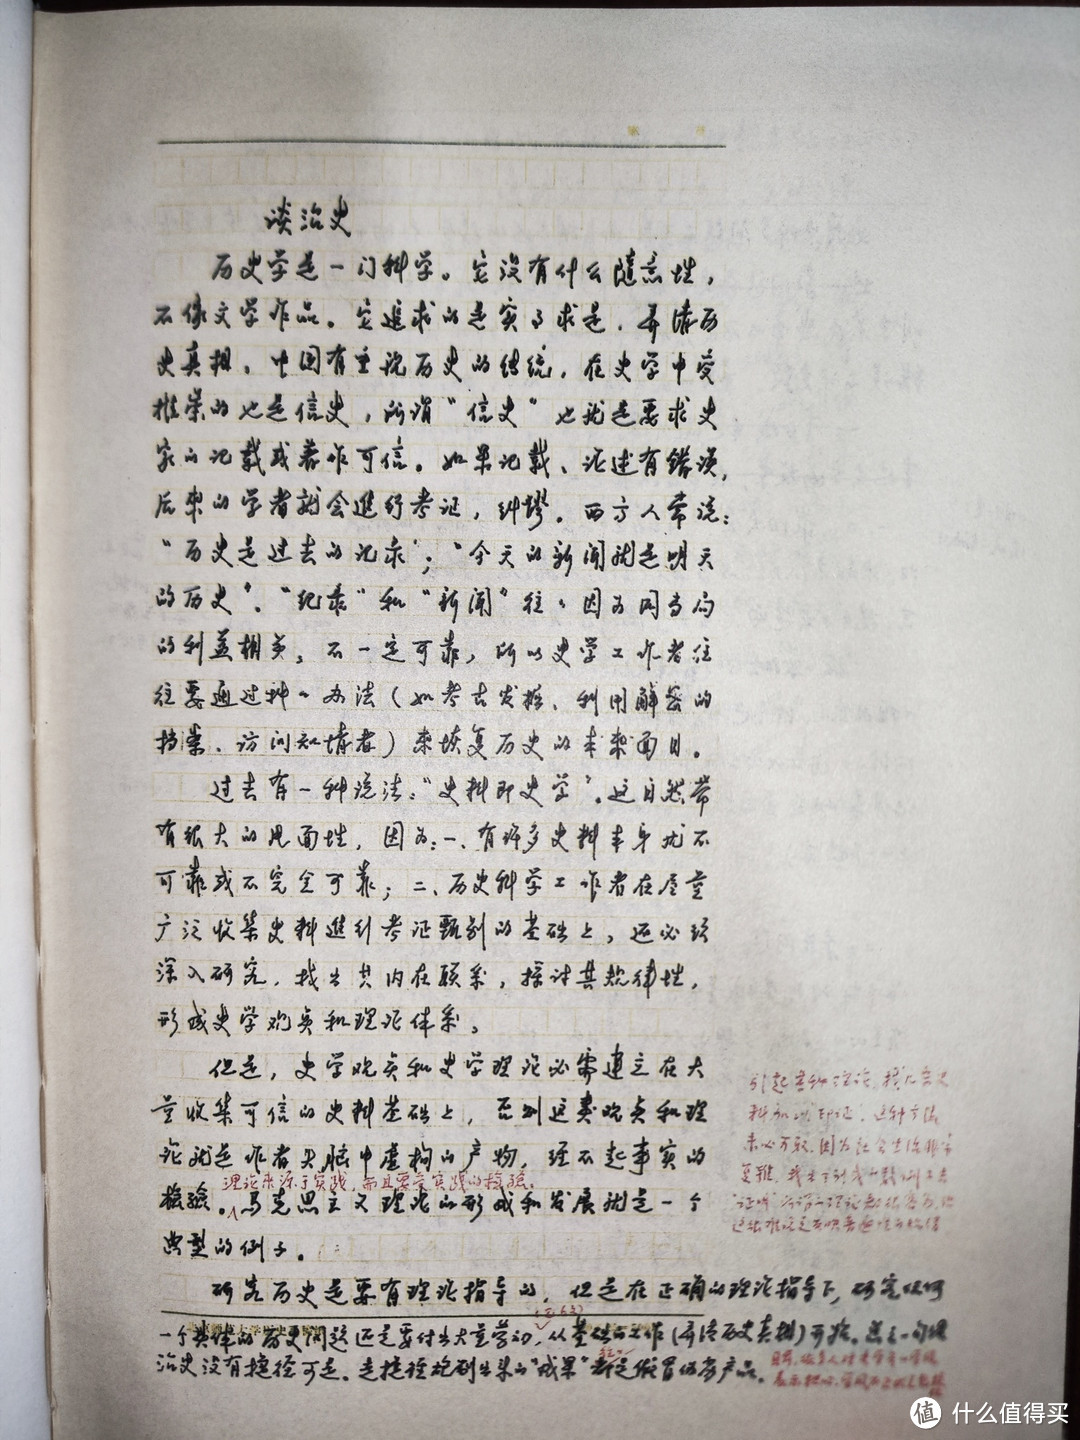 谈治史
历史学是一门科学。它没有什么随意性，
不像文学作品。它追求的是实事求是，弄清历
史真相。中国有重视历史的传统，在史学中受
推崇的也是信史，所谓“信史”也就是要求史
家的记载或著作可信。如果记载、论述有错误，
后来的学者就会进行考证，纠谬。西方人常说：
“历史是过去的记录”；“今天的新闻就是明天
的历史”。“纪录”和“新闻”往往因为同当局
的利益相关，不一定可靠，所以史学工作者往
往要通过种种办法（如考古发掘、利用解密的
档案、访问知情者）来恢复历史的本来面目。
过去有一种说法：“史料即史学”。这自然带
有很大的片面性，因为：一、有许多史料本身就不
可靠或不完全可靠；二、历史科学工作者在尽量
广泛收集史料进行考证甄别的基础上，还必须
深入研究，找出其内在联系，探讨其规律性，
形成史学观点和理论体系。
但是，史学观点和史学理论必需建立在大
量收集可信的史料基础上，否则这类观点和理
论就是作者头脑中虚构的产物，经不起事实的
理论来源于实践，而且要受实践的检验。
检验。马克思主义理论的形成和发展就是一个
典型的例子。
研究历史是要有理论指导的，但是在正确的理论指导下，研究任何
一个具体的历史问题还是要付出大量劳动，从基础的工作（弄清历史真相）开始。总之一句话
治史没有捷径可走。走捷径炮制出来的“成果”都是假冒伪劣产品。
引起某种理论，找几条史
料加以“印证”，这种方法
未必可取，因为社会生活非常
复杂，
值 什么值得买